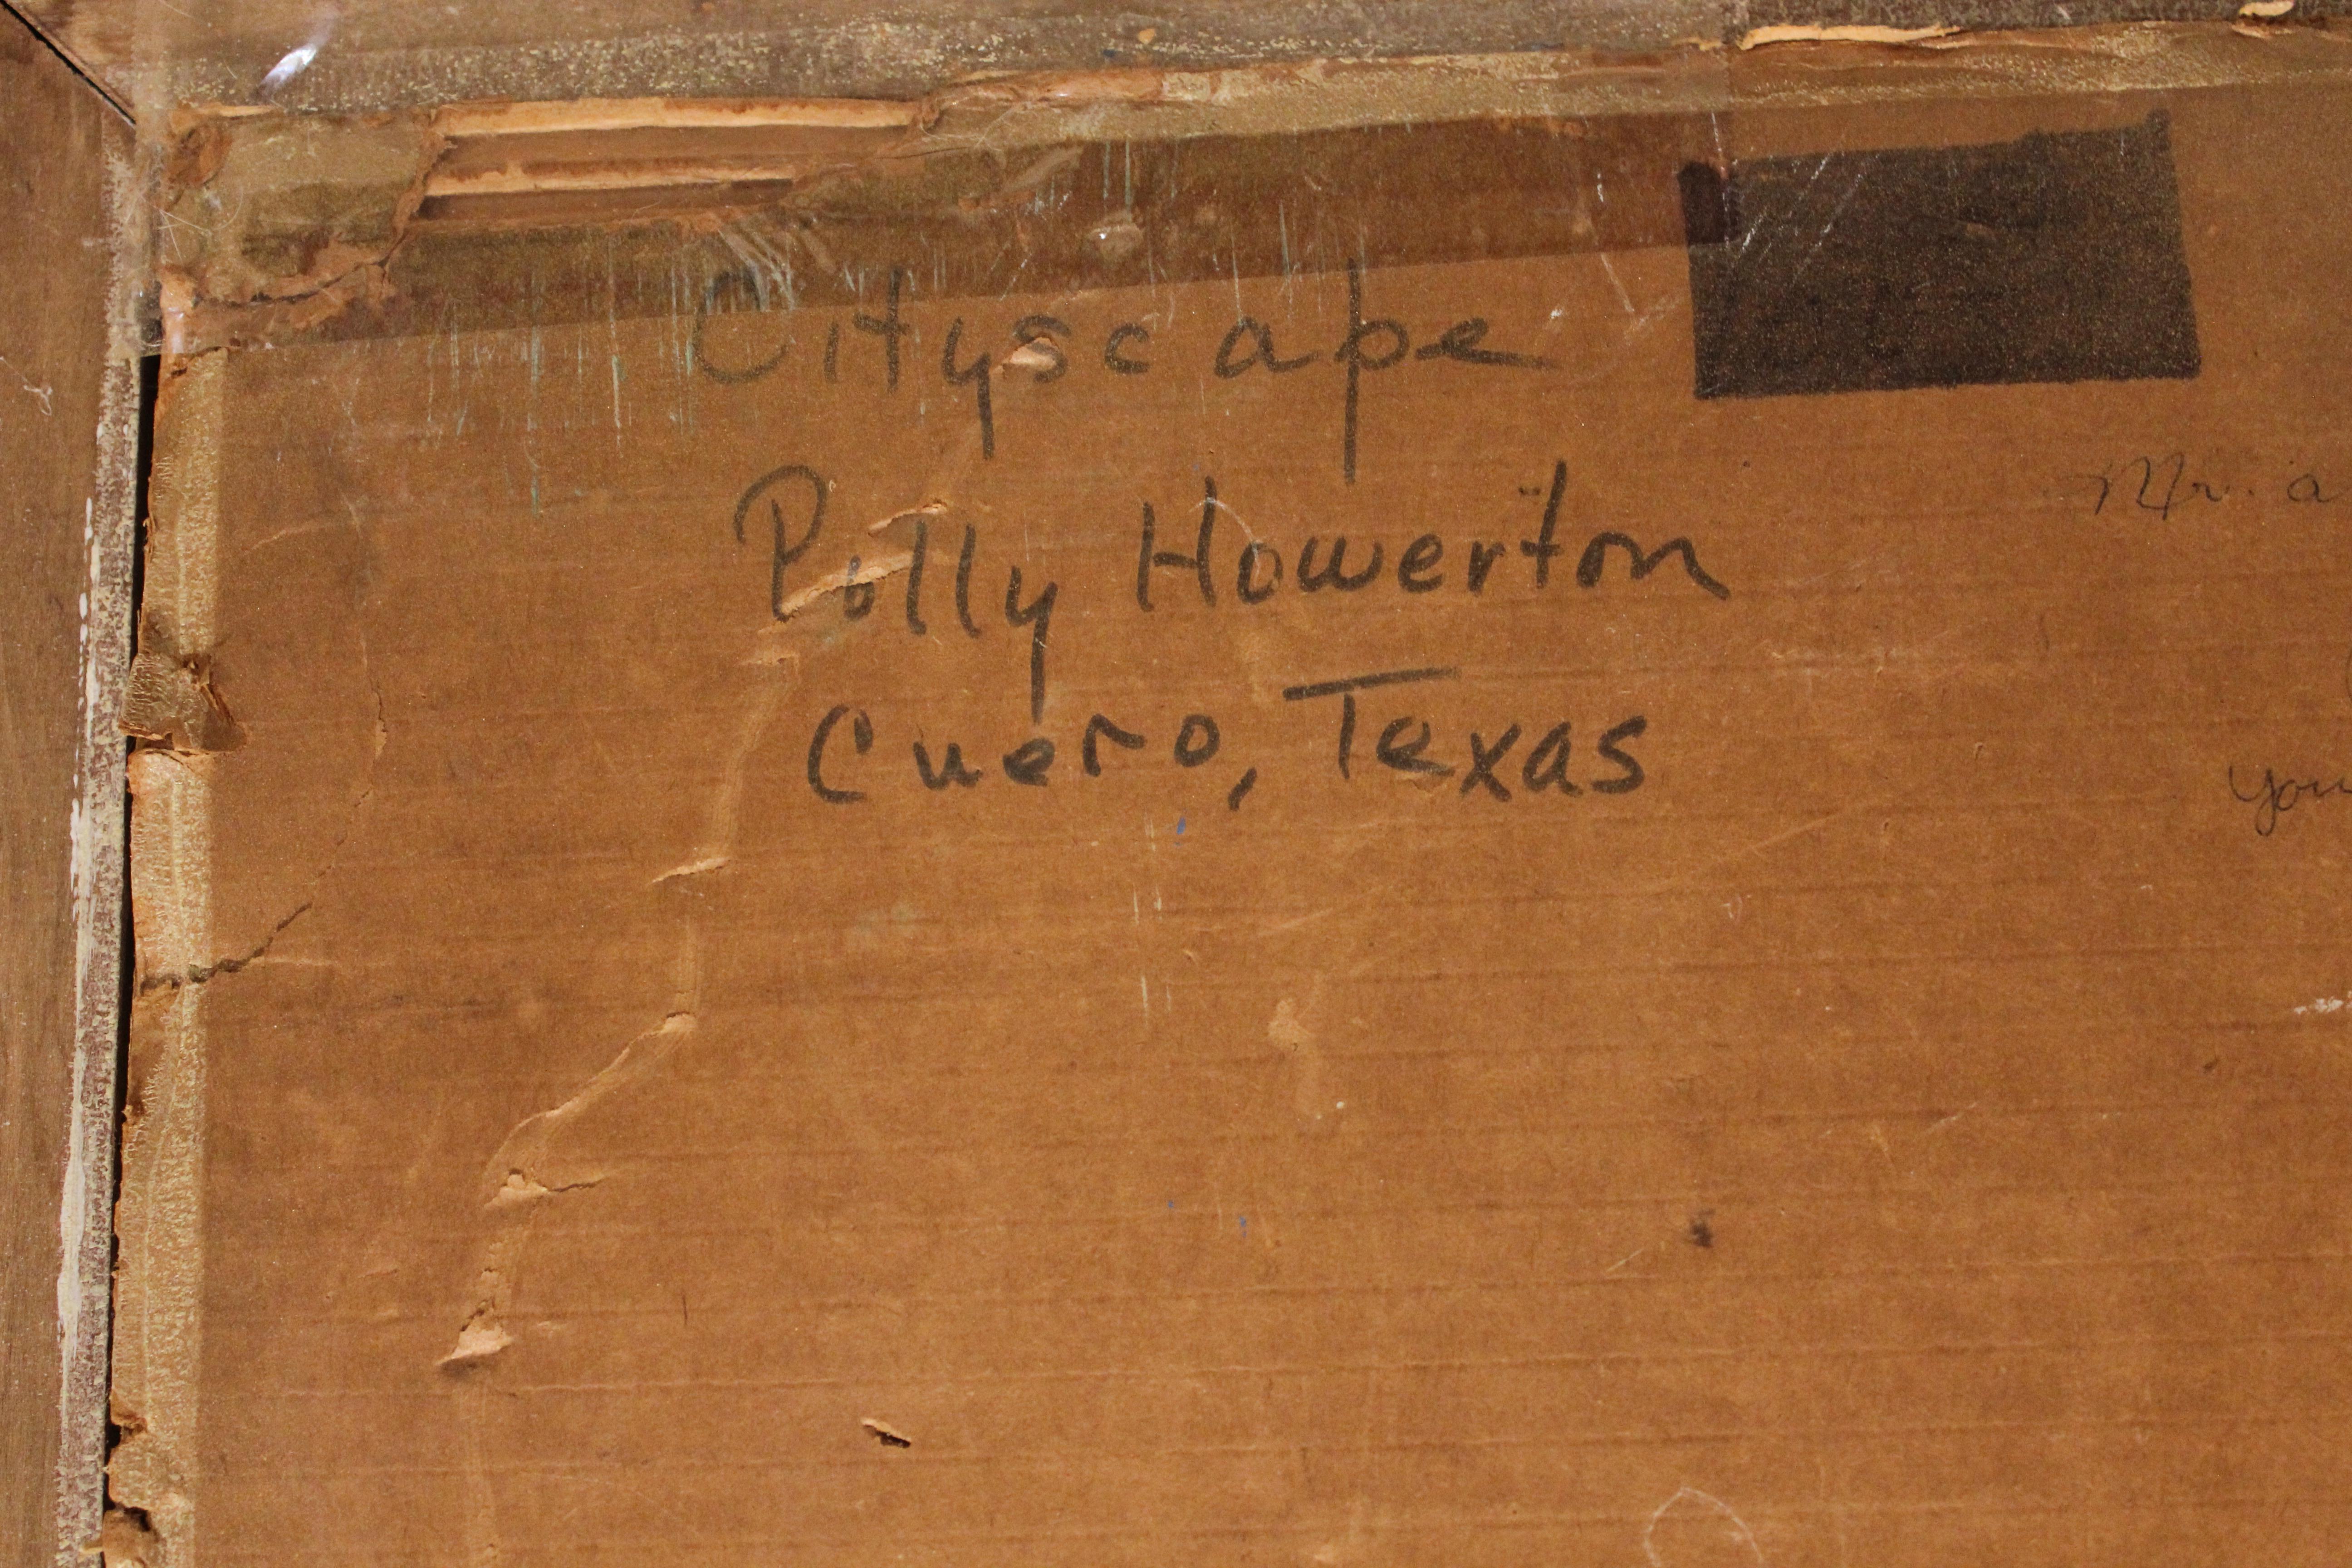 Cityscape
Polly Howerton
Cuero, Texas
Mr. a
you